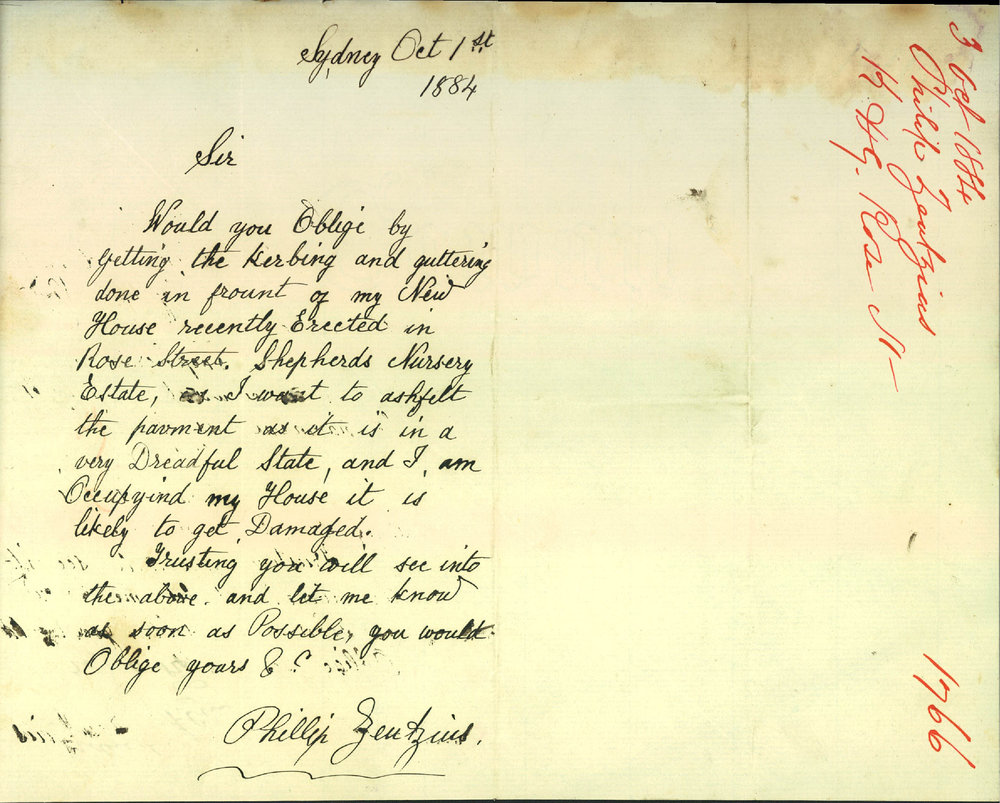 Sydney Oct 1st
1884
Sir
Would you Oblige by
getting the Kerbing and guttering
done in frount of my New
House recently Erected in
Rose Street. Shepherds Nursery
Estate, as I want to ashfelt
the pavment as it is in a
very Dreadful State, and I am
Occupyind my House it is
likely to get Damaged.
Trusting you will see into
the above and let me know
as soon as Possible, you would
Oblige yours &c
Phillip Zeutzius.
3 Oct 1884
Philip Zeutzius
K & G. Rose St
1766